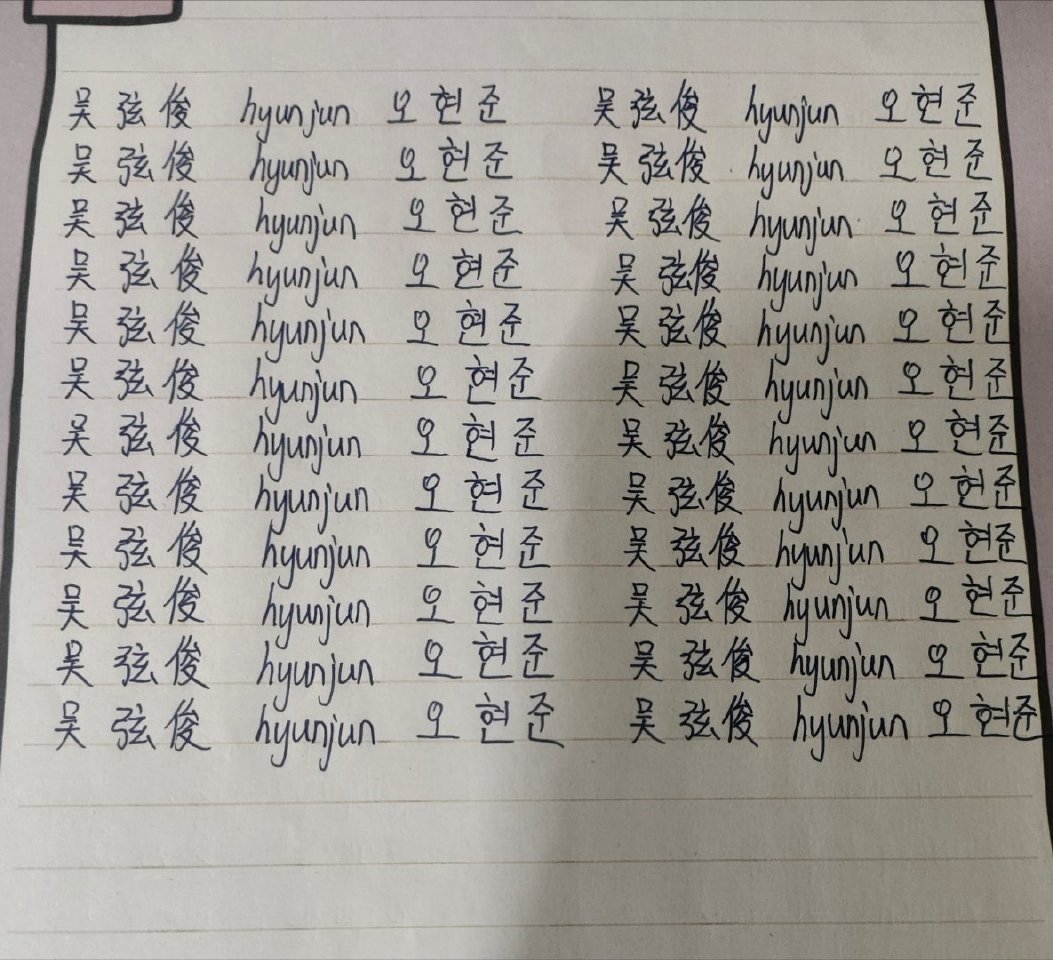 吴 弦 俊 hyunjun 오 현 준 吴 弦 俊 hyunjun 오 현 준
吴 弦 俊 hyunjun 오 현 준 吴 弦 俊 hyunjun 오 현 준
吴 弦 俊 hyunjun 오 현 준 吴 弦 俊 hyunjun 오 현 준
吴 弦 俊 hyunjun 오 현 준 吴 弦 俊 hyunjun 오 현 준
吴 弦 俊 hyunjun 오 현 준 吴 弦 俊 hyunjun 오 현 준
吴 弦 俊 hyunjun 오 현 준 吴 弦 俊 hyunjun 오 현 준
吴 弦 俊 hyunjun 오 현 준 吴 弦 俊 hyunjun 오 현 준
吴 弦 俊 hyunjun 오 현 준 吴 弦 俊 hyunjun 오 현 준
吴 弦 俊 hyunjun 오 현 준 吴 弦 俊 hyunjun 오 현 준
吴 弦 俊 hyunjun 오 현 준 吴 弦 俊 hyunjun 오 현 준
吴 弦 俊 hyunjun 오 현 준 吴 弦 俊 hyunjun 오 현 준
吴 弦 俊 hyunjun 오 현 준 吴 弦 俊 hyunjun 오 현 준